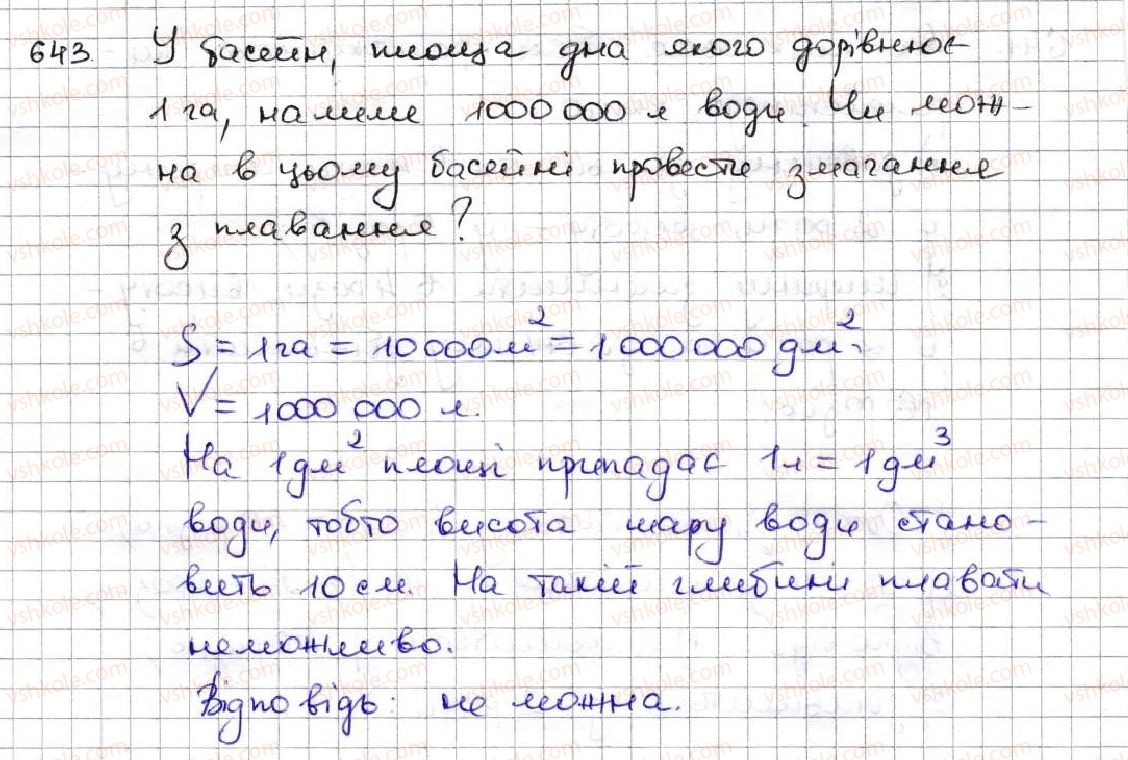 643. У басейн, площа дна якого дорівнює
1 га, налили 1000 000 л води. Чи мож-
на в цьому басейні провести змагання
з плавання?
S = 1 га = 10 000 м² = 1 000 000 дм².
V = 1000 000 л.
На 1 дм² площі припадає 1 л = 1 дм³
води, тобто висота шару води стано-
вить 10 см. На такій глибині плавати
неможливо.
Відповідь: не можна.